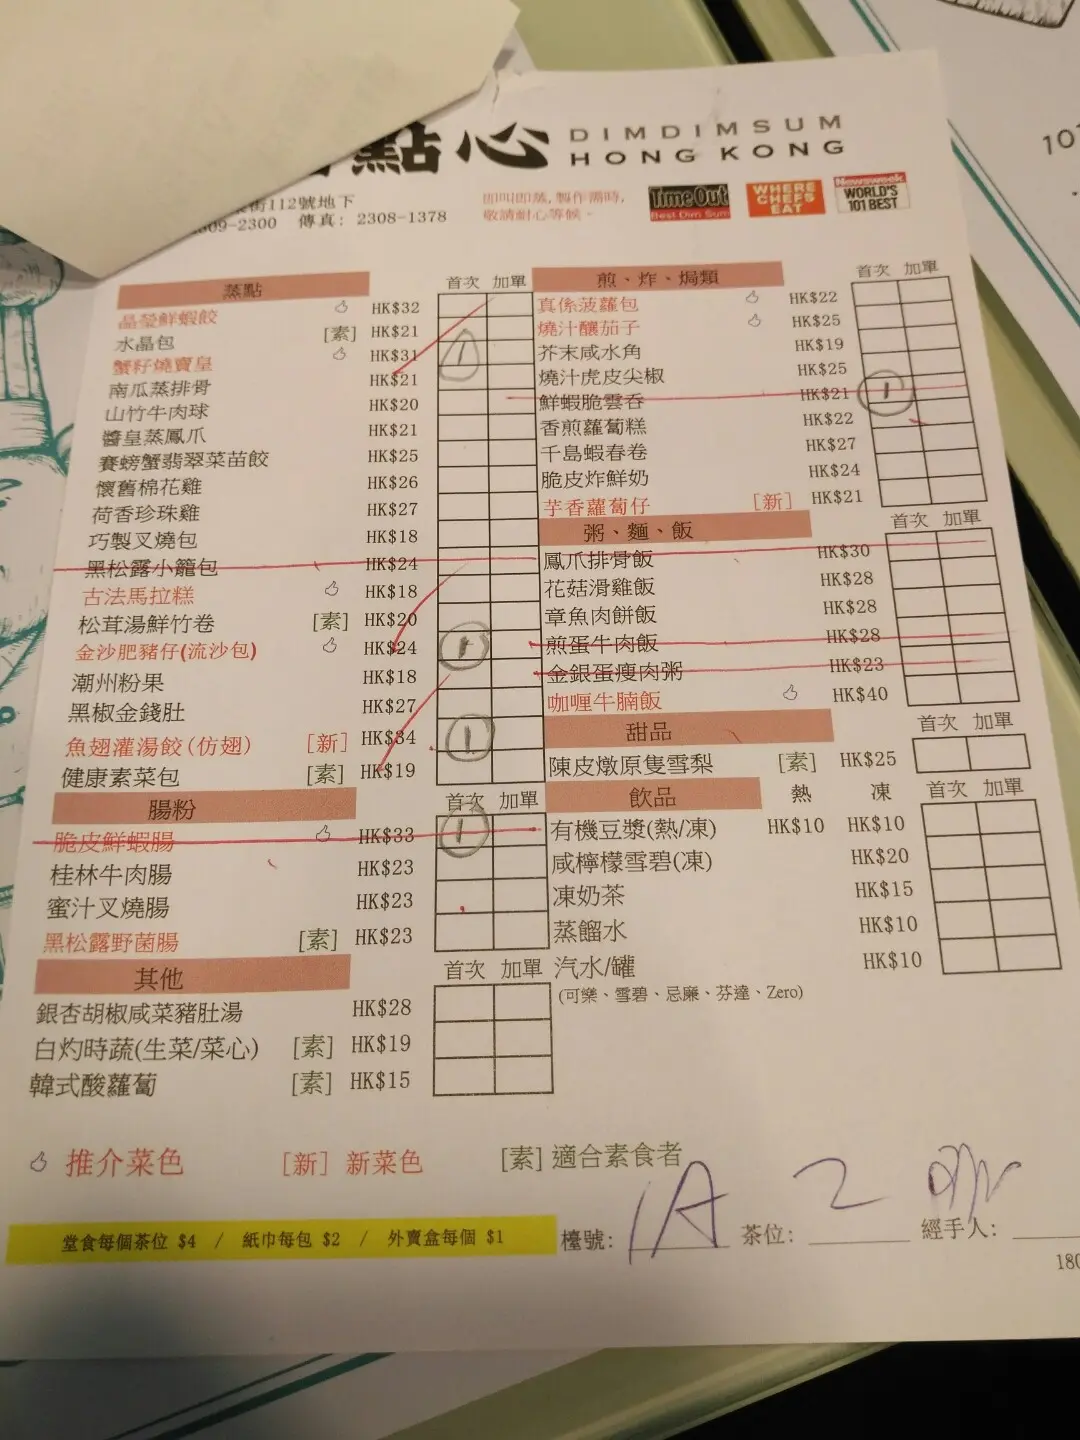 點心 DIMDIMSUM
HONG KONG
街112號地下
2300 傳真: 2308-1378
即叫即蒸,製作需時,
敬請耐心等候。
TimeOut
Best Dim Sum
WHERE
CHEFS
EAT
Newsweek
WORLD'S
101 BEST
蒸點 首次 加單
晶瑩鮮蝦餃 HK$32
水晶包 [素] HK$21
蟹籽燒賣皇 HK$31
南瓜蒸排骨 HK$21
山竹牛肉球 HK$20
醬皇蒸鳳爪 HK$21
賽螃蟹翡翠菜苗餃 HK$25
懷舊棉花雞 HK$26
荷香珍珠雞 HK$27
巧製叉燒包 HK$18
黑松露小籠包 HK$24
古法馬拉糕 HK$18
松茸湯鮮竹卷 [素] HK$20
金沙肥豬仔(流沙包) HK$24
潮州粉果 HK$18
黑椒金錢肚 HK$27
魚翅灌湯餃(仿翅) [新] HK$34
健康素菜包 [素] HK$19
1
1
1
腸粉 首次 加單
脆皮鮮蝦腸 HK$33 1
桂林牛肉腸 HK$23
蜜汁叉燒腸 HK$23
黑松露野菌腸 [素] HK$23
其他 首次 加單
銀杏胡椒咸菜豬肚湯 HK$28
白灼時蔬(生菜/菜心) [素] HK$19
韓式酸蘿蔔 [素] HK$15
煎、炸、焗類 首次 加單
真係菠蘿包 HK$22
燒汁釀茄子 HK$25
芥末咸水角 HK$19
燒汁虎皮尖椒 HK$25
鮮蝦脆雲呑 HK$21 1
香煎蘿蔔糕 HK$22
千島蝦春卷 HK$27
脆皮炸鮮奶 HK$24
芋香蘿蔔仔 [新] HK$21
粥、麵、飯 首次 加單
鳳爪排骨飯 HK$30
花菇滑雞飯 HK$28
章魚肉餅飯 HK$28
煎蛋牛肉飯 HK$28
金銀蛋瘦肉粥 HK$23
咖喱牛腩飯 HK$40
甜品 首次 加單
陳皮燉原隻雪梨 [素] HK$25
飲品 熱 凍 首次 加單
有機豆漿(熱/凍) HK$10 HK$10
咸檸檬雪碧(凍) HK$20
凍奶茶 HK$15
蒸餾水 HK$10
汽水/罐 HK$10
(可樂、雪碧、忌廉、芬達、Zero)
推介菜色 [新] 新菜色 [素] 適合素食者
堂食每個茶位 $4 / 紙巾每包 $2 / 外賣盒每個 $1
檯號: 1A 茶位: 2 經手人:
180
107